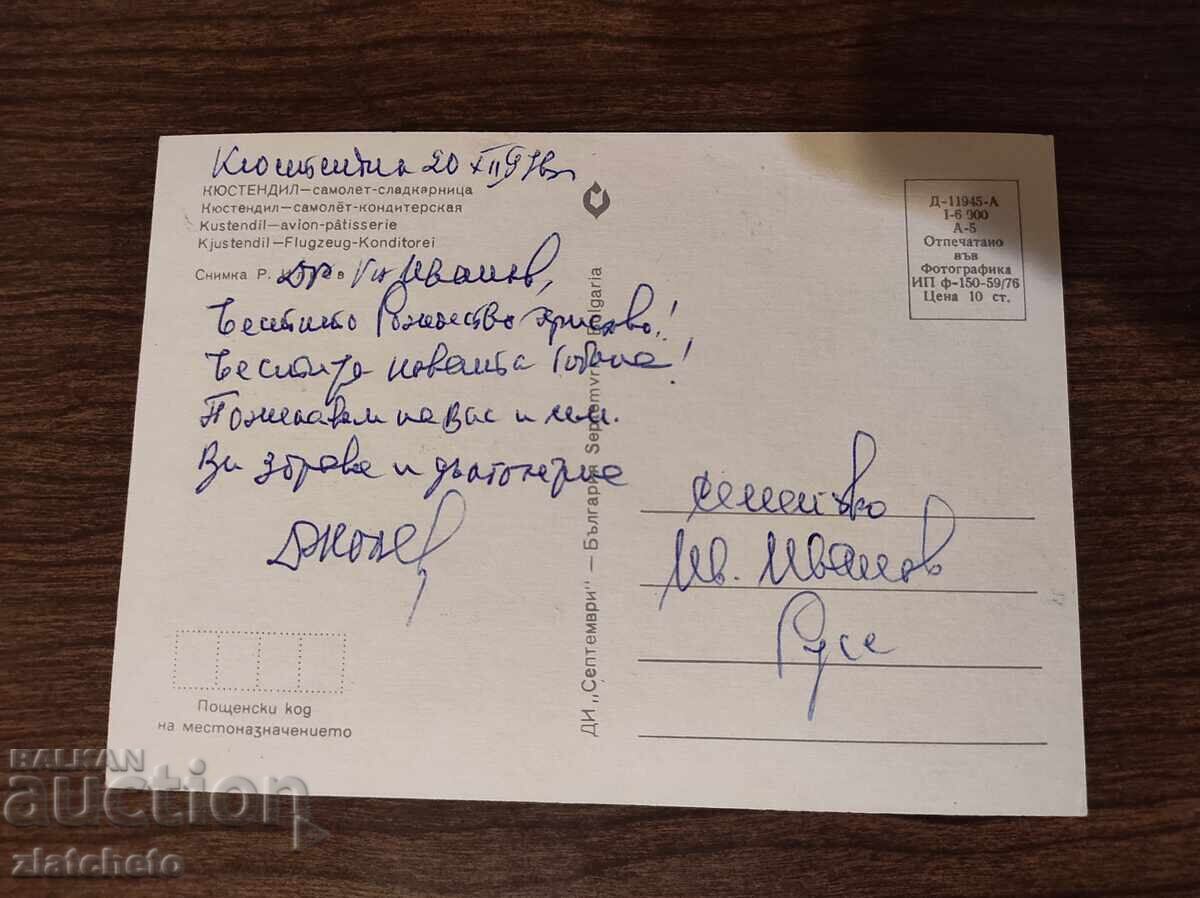 Кюстендил 20 XII
КЮСТЕНДИЛ—самолет-сладкарница
Кюстендил—самолёт-кондитерская
Kustendil—avion-pâtisserie
Kjustendil—Flugzeug-Konditorei
Снимка Р.
Др Иванов,
Честито Рождество Христово!
Честита новата Година!
Пожелавам на Вас и
Ви здраве и дълголетие
Семейство
Ив. Иванов
Русе
Пощенски код
на местоназначението
ДИ „Септември" — България Septemvri Bulgaria
Д-11945-А
1-6 900
А-5
Отпечатано
във
Фотографика
ИП ф-150-59/76
Цена 10 ст.
BALKAN
auction
zlatcheto